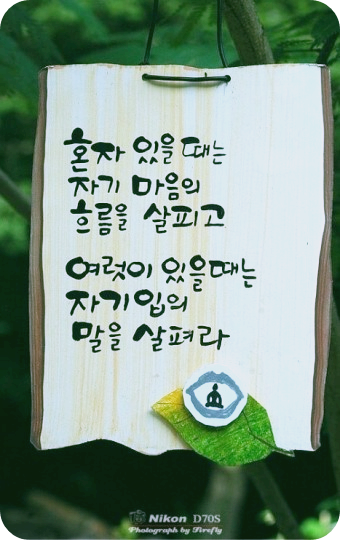 혼자 있을 때는
자기 마음의
흐름을 살피고
여럿이 있을때는
자기입의
말을 살펴라
Nikon D70S
Photograph by Firefly